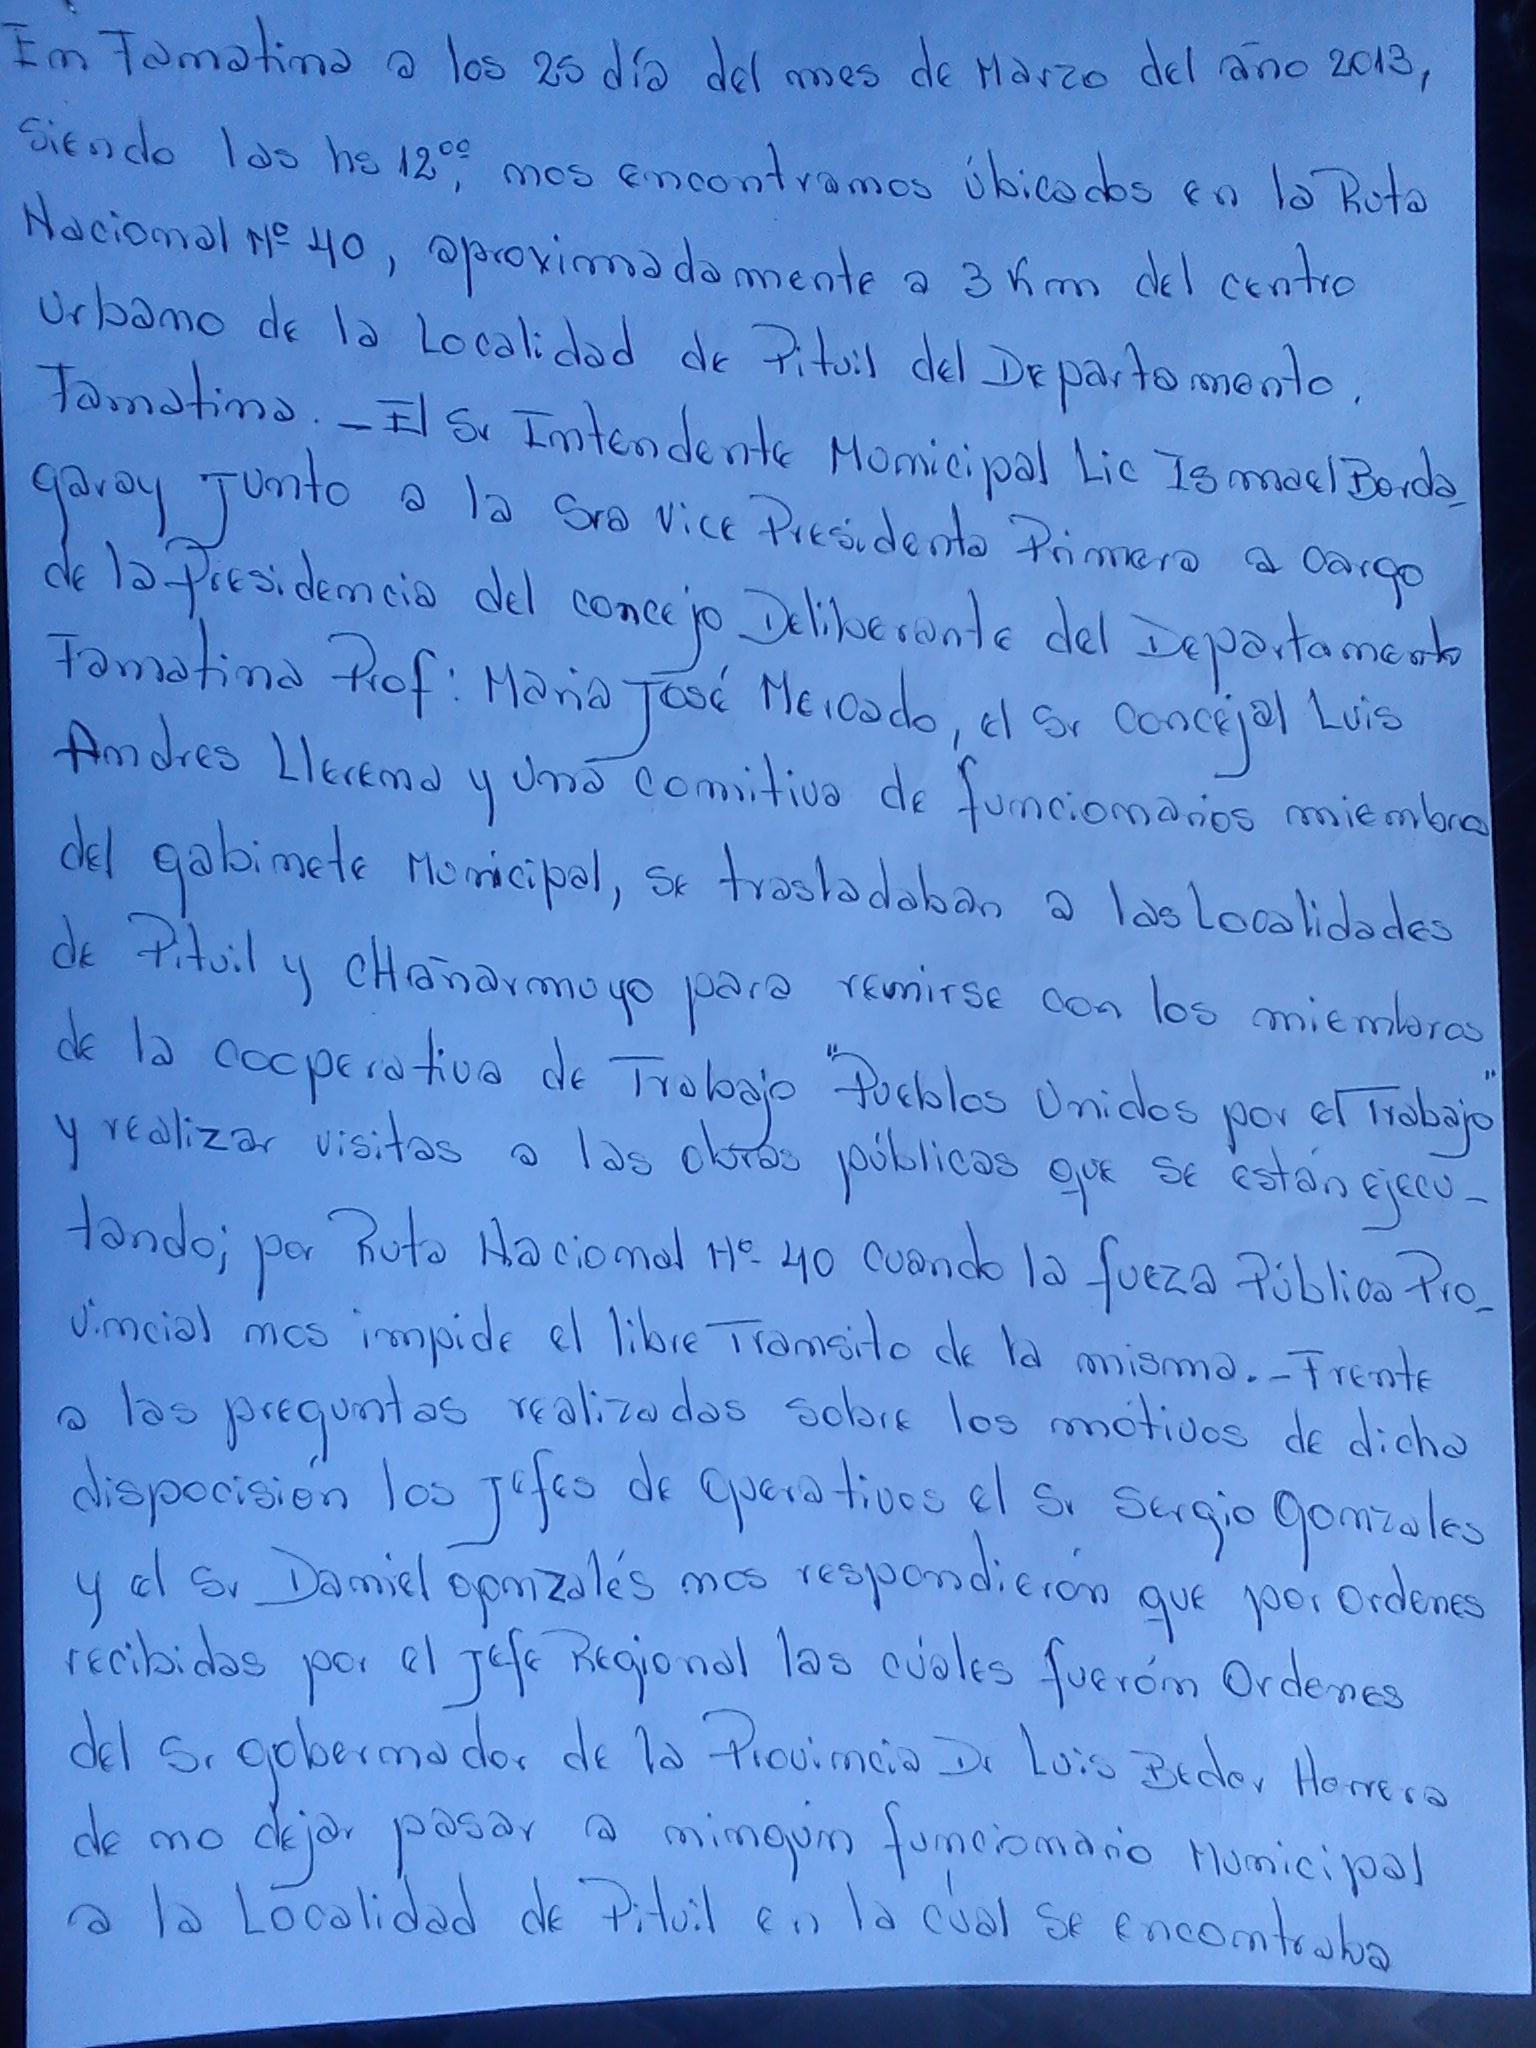 En Famatina a los 25 día del mes de Marzo del año 2013,
siendo las hs 12⁰⁰, nos encontramos úbicados en la Ruta
Nacional Nº 40, aproximadamente a 3 Km del centro
urbano de la Localidad de Pituil del Departamento
Famatina.- El Sr Intendente Municipal Lic Ismael Borda-
garay junto a la Sra Vice Presidenta Primera a cargo
de la Presidencia del concejo Deliberante del Departamento
Famatina Prof: Maria José Mercado, el Sr Concejal Luis
Andres Llerena y una comitiva de funcionarios miembros
del gabinete Municipal, se trasladaban a las Localidades
de Pituil y CHañarmuyo para reunirse con los miembros
de la cooperativa de Trabajo "Pueblos Unidos por el Trabajo"
y realizar visitas a las obras públicas que se están ejecu-
tando; por Ruta Nacional Nº 40 cuando la fueza Pública Pro-
vincial nos impide el libre Transito de la misma.- Frente
a las preguntas realizadas sobre los mótivos de dicha
dispocisión los jefes de operativos el Sr Sergio Gonzales
y el Sr Daniel Gonzalés nos respondierón que por ordenes
recibidas por el jefe Regional las cúales fuerón Ordenes
del Sr gobernador de la Provincia Dr Luis Beder Herrera
de no dejar pasar a ningún funcionario Municipal
a la Localidad de Pituil en la cúal se encontraba